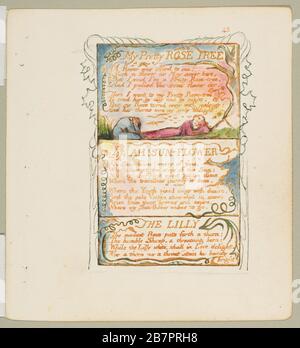 My Pretty ROSE TREE
A flower was offerd to me:
Such a flower as May never bore.
But I said I've a Pretty Rose-tree,
And I passed the sweet flower o'er.
Then I went to my Pretty Rose-tree:
To tend her by day and by night.
But my Rose turnd away with jealousy:
And her thorns were my only delight.
AH! SUN-FLOWER
Where the Youth pined away with desire,
And the pale Virgin shrouded in snow:
Arise from their graves and aspire,
Where my Sun-flower wishes to go.
THE LILLY
The modest Rose puts forth a thorn:
The humble Sheep, a threatning horn:
While the Lilly white, shall in Love delight,
Nor a thorn nor a threat stain her beauty
bright
alamy
Image ID: 2B7PRH8
www.alamy.com